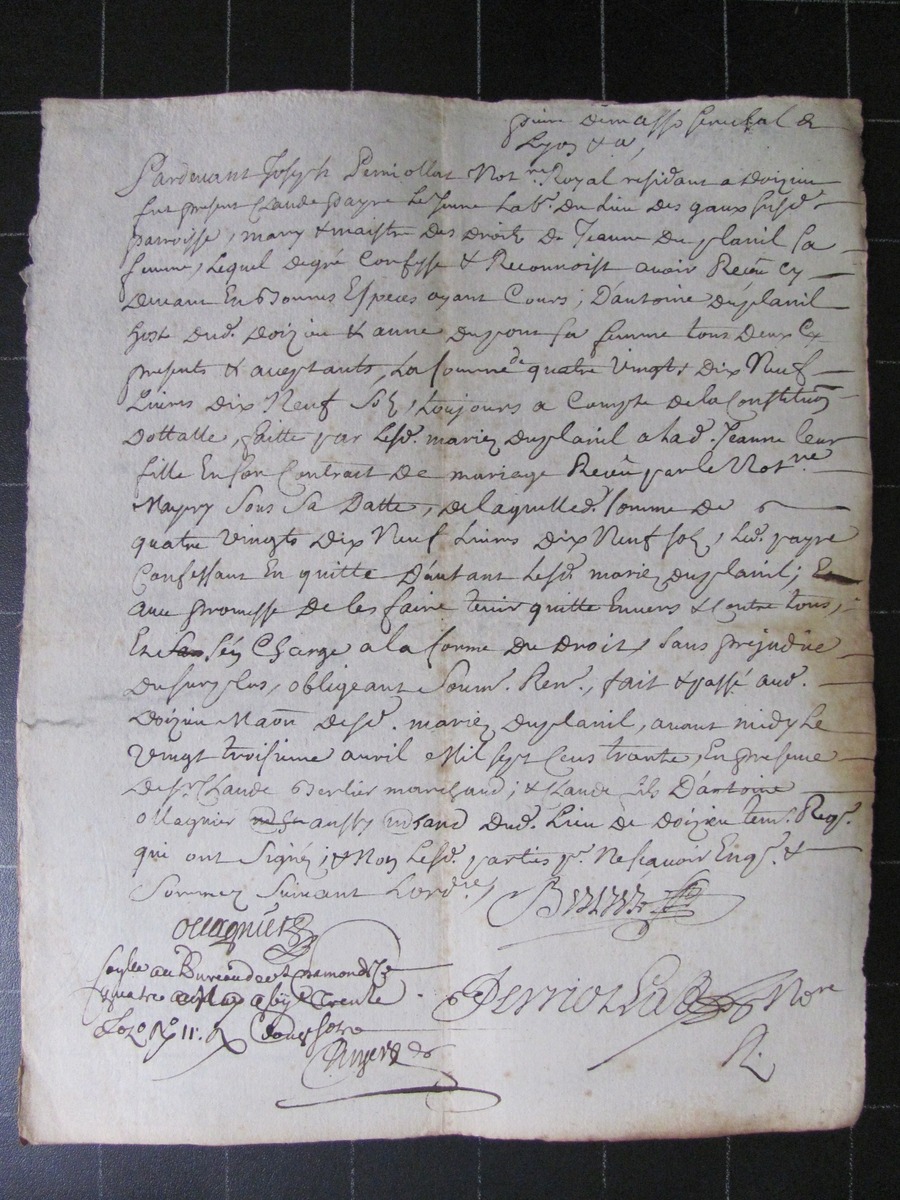 Lyon & a,
Pardevant Joseph Perriollat Not.re Royal residant a doizieu
fut present Claude payre le Jeune lab.r du lieu des gaux susd.
parroisse, mary & maistre des droits de Jeanne duplanil sa
femme, lequel degré Confesse & Reconnoist avoir Reçeu cy
devant En bonnes Especes ayant Cours; D'antoine duplanil
hoste dud. doizieu & anne dupont sa femme tous deux Cy
presents & aceptants, la somme de quatre vingts dix Neuf
Livres dix Neuf sols, toujours a Compte de la Constitution
dottalle, faitte par lesd. mariez duplanil a lad. Jeanne leur
fille En son Contrast de mariage Reçeu par le Not.re
Mayery sous sa datte, de laquelle d. somme de
quatre vingts dix Neuf livres dix Neuf sols, led. payre
Confessant En quitte D'autant lesd. mariez duplanil;
avec promesse de les faire tenir quitte Envers & Contre tous,
Et sén Charge a la forme du droit, sans prejudice
du surplus, obligeant soum. Ren., fait & passé aud.
doizieu Maon desd. mariez duplanil, avant midy le
vingt troisieme avril Mil sept Cens trante, En presence
de sr. Claude Berlier marchand; & Claude fils D'antoine
ollagnier aussy dud. Lieu de doizieu tem. Req.
qui ont signéz; & Non lesd. parties pr. Nesçavoir Enq. &
sommez suivant L'ord.re
Berlier
ollagnier
Perriollat Nore
quatre